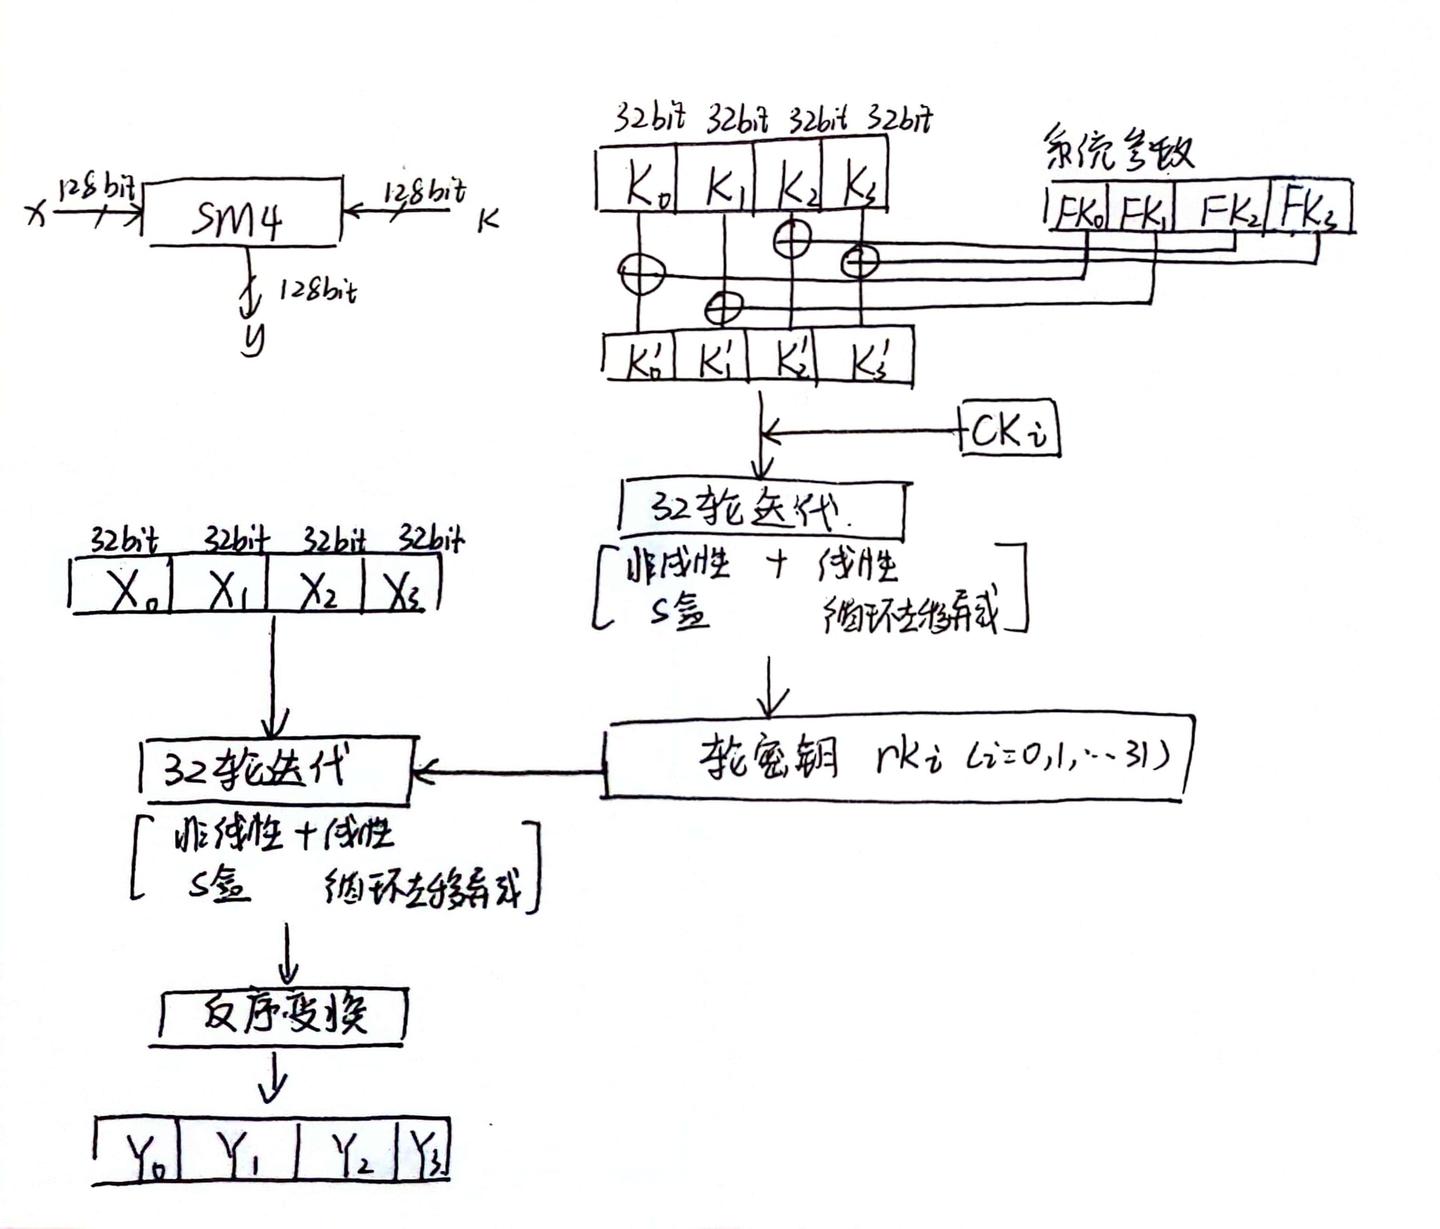 128bit
128bit
X
SM4
K
128bit
y
32bit 32bit 32bit 32bit
K₀ K₁ K₂ K₃
系统参数
FK₀ FK₁ FK₂ FK₃
K₀' K₁' K₂' K₃'
CKi
32轮迭代.
非线性 + 线性
S盒 循环左移异或
轮密钥 rki (i=0,1,…31)
32bit 32bit 32bit 32bit
X₀ X₁ X₂ X₃
32轮迭代
非线性+线性
S盒 循环左移异或
反序变换
Y₀ Y₁ Y₂ Y₃